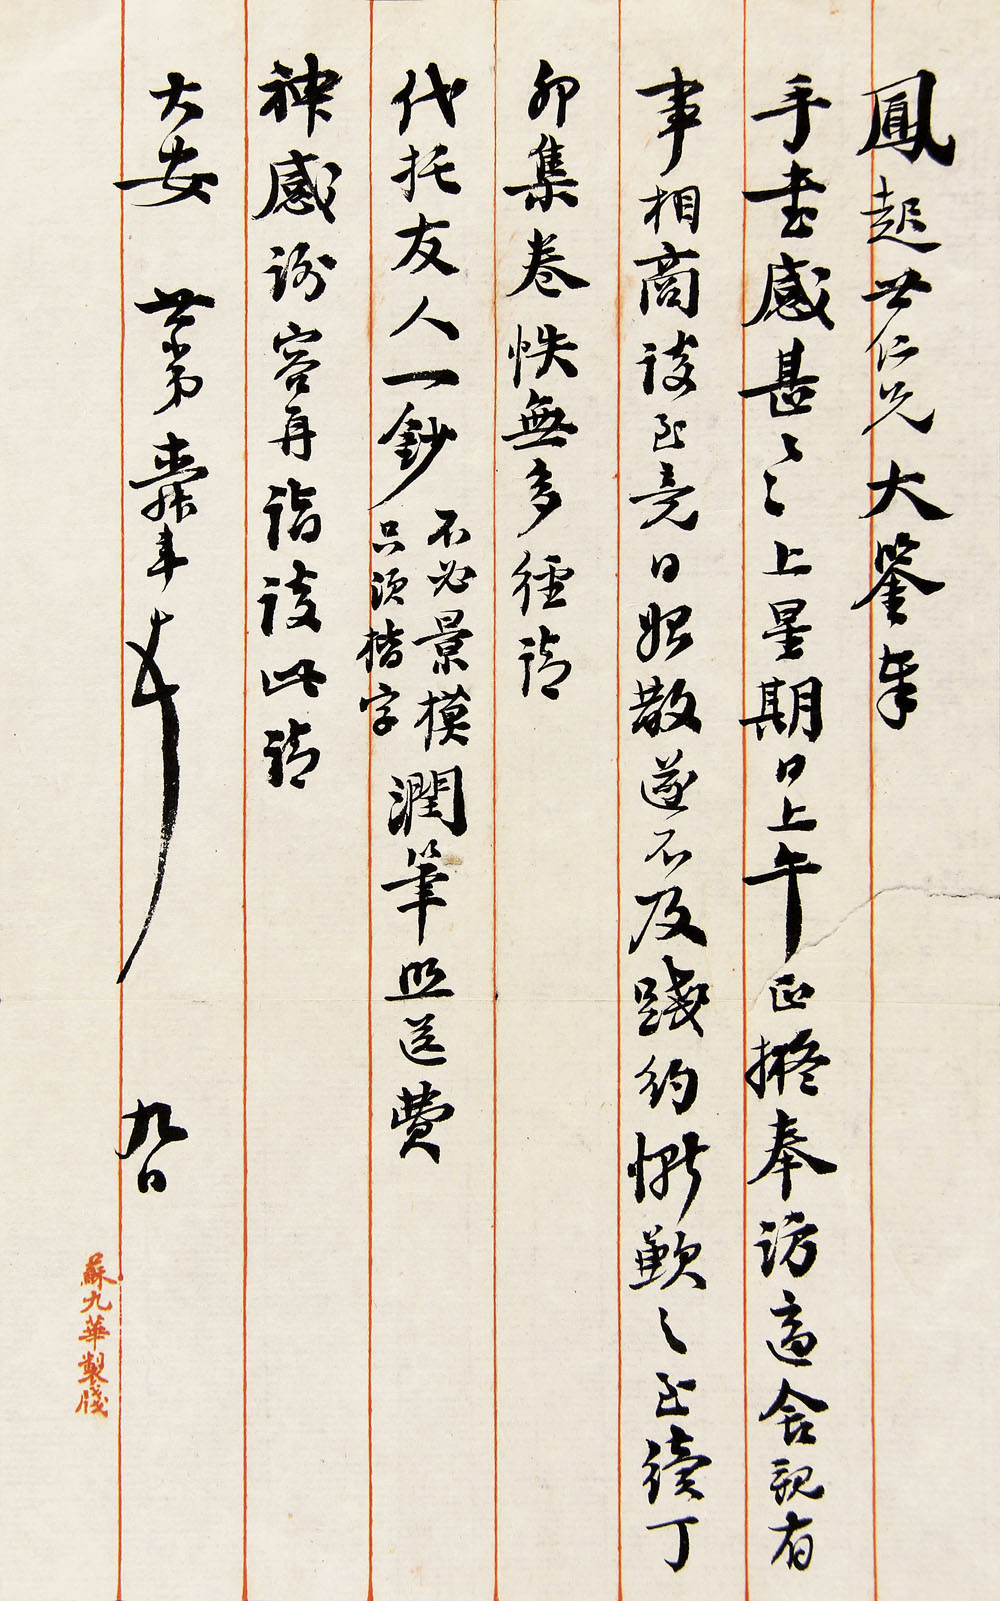 鳳起世仁兄大鑒奉
手書感甚〻上星期日上午正擬奉訪適舍親有
事相商談至竟日始散遂不及踐約慚歉〻至續丁
卯集卷帙無多徑請
代托友人一鈔不必景模
只須楷字
潤筆照送費
神感谢容再詣談此請
大安 世弟 頓首
九日
蘇九華製牋